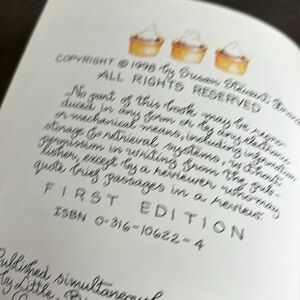 COPYRIGHT © 1998 by Susan Stewart
ALL RIGHTS RESERVED
No part of this book may be repro-
duced in any form or by any electronic
or mechanical means, including information
storage & retrieval systems, without
permission in writing from the pub-
lisher, except by a reviewer who may
quote brief passages in a review.
FIRST EDITION
ISBN 0-316-10622-4
Published simultaneously
by Little,